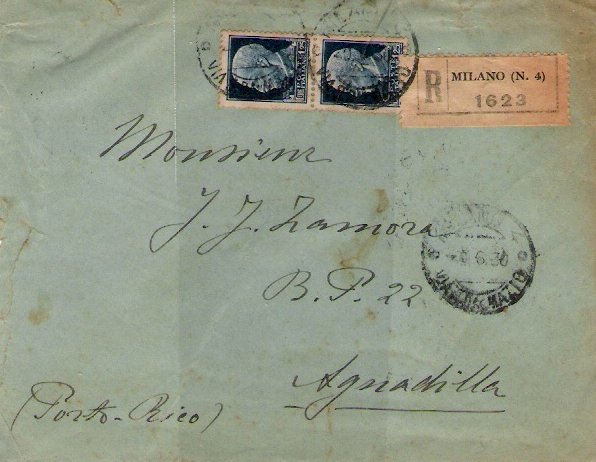 R
MILANO (N. 4)
1623
Monsieur
J. J. Zamora
B. P. 22
Aguadilla
(Porto-Rico)